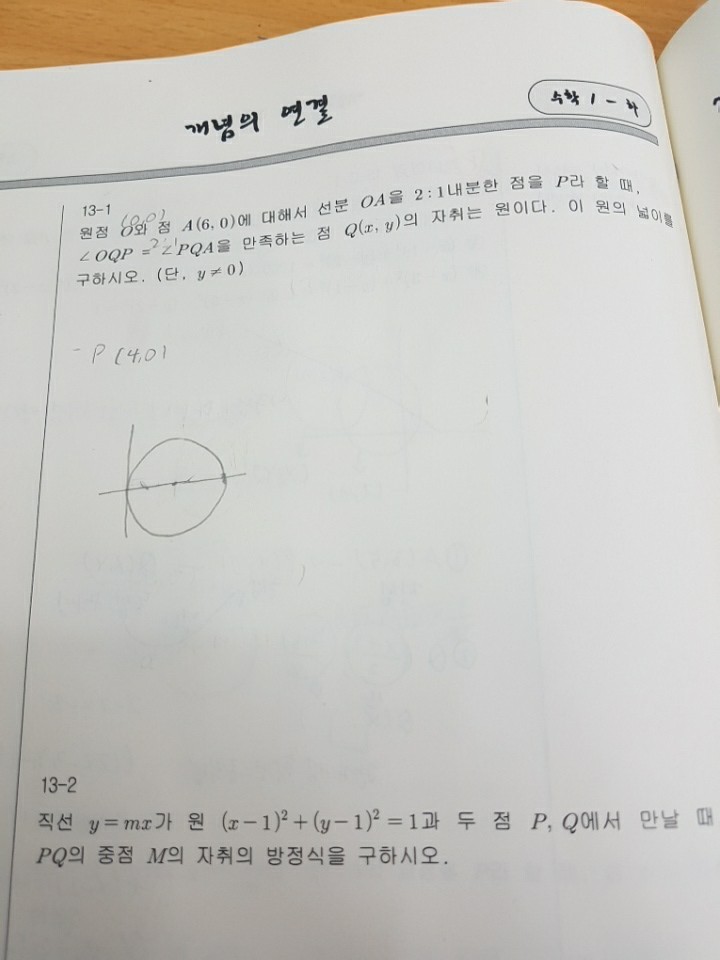 개념의 연결
수학 1 - 하
13-1
(0,0)
원점 O와 점 A(6, 0)에 대해서 선분 OA을 2 : 1내분한 점을 P라 할 때,
∠OQP = ∠PQA을 만족하는 점 Q(x, y)의 자취는 원이다. 이 원의 넓이를
2 1
구하시오. (단, y≠0)
- P (4,0)
13-2
직선 y=mx가 원 (x-1)²+(y-1)²=1과 두 점 P, Q에서 만날 때
PQ의 중점 M의 자취의 방정식을 구하시오.